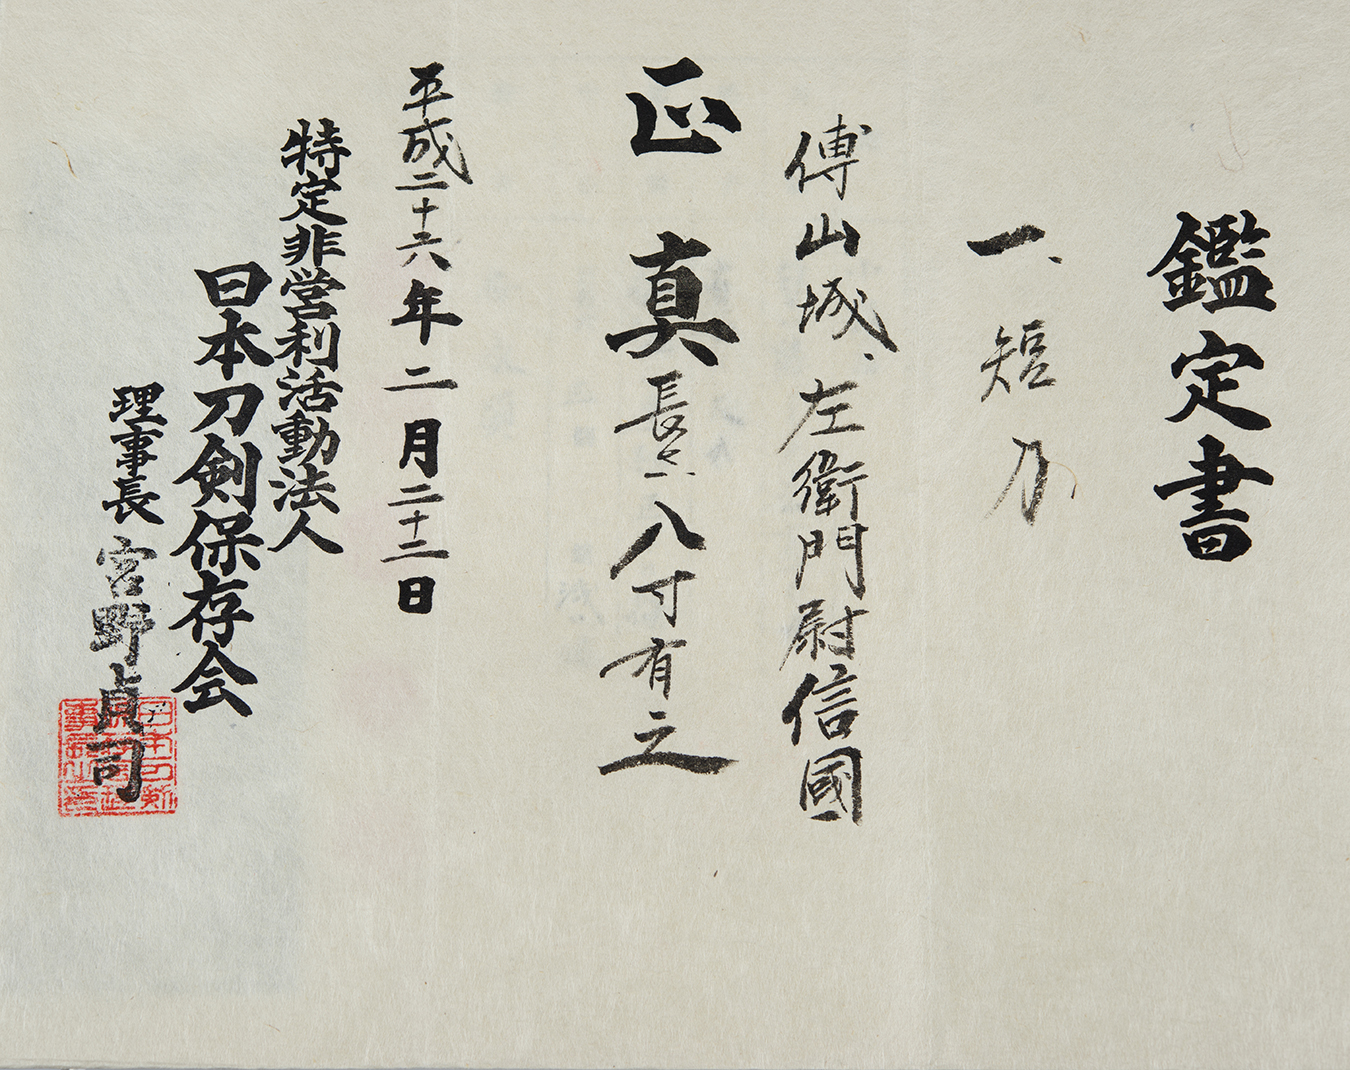 鑑定書
一、短刀
傳山城、左衛門尉信國
正真 長サ八寸有之
平成二十六年二月二十二日
特定非営利活動法人
日本刀剣保存会
理事長 宮野貞司